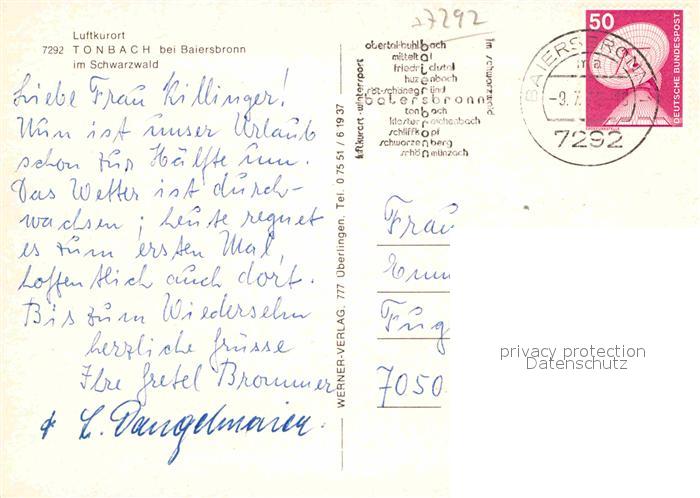 Luftkurort
7292 TONBACH bei Baiersbronn
im Schwarzwald
Liebe Frau Killinger!
Nun ist unser Urlaub
schon zur Hälfte um.
Das Wetter ist durch-
wachsen; heute regnet
es zum ersten Mal,
hoffentlich auch dort.
Bis zum Wiedersehn
herzliche Grüsse
Ihre Gretel Brommer
& L. Dangelmaier.
WERNER-VERLAG, 777 Überlingen, Tel. 0 75 51 / 6 19 37
7292
luftkurort-wintersport
obertal-buhlbach
mitteltal
friedrichstal
huzenbach
röt-schönegründ
baiersbronn
tonbach
klosterreichenbach
schliffkopf
schwarzenberg
schönmünzach
im schwarzwald
BAIERSBRONN
ma
-9.7.
7292
50
DEUTSCHE BUNDESPOST
Frau
Fug
7050
privacy protection
Datenschutz